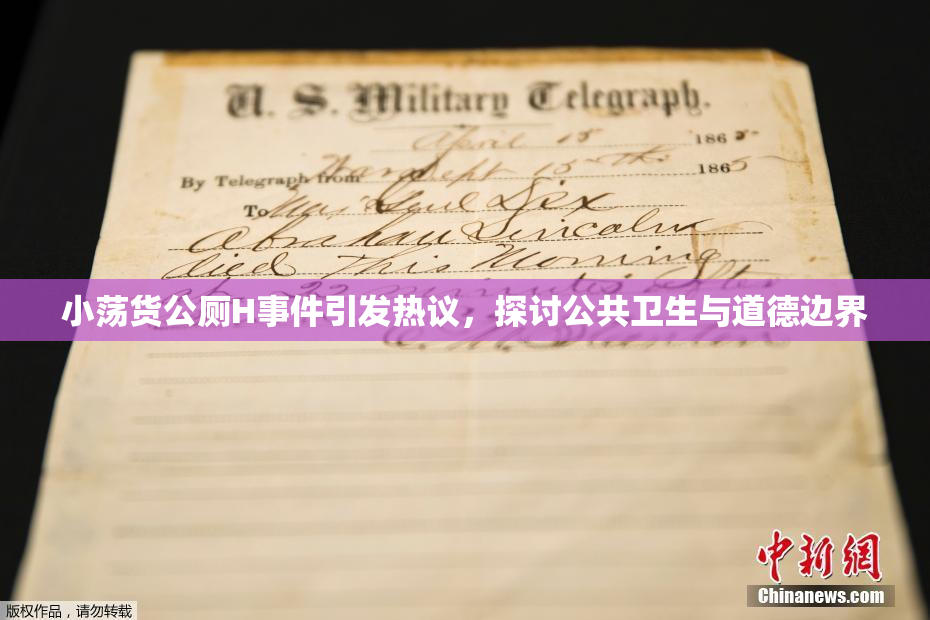 U. S. Military Telegraph.
April 15 1865
By Telegraph from War Dept 15th 1865
To Maj Genl Dix
Abraham Lincoln
died This Morning
at 22 minutes after
小荡货公厕H事件引发热议，探讨公共卫生与道德边界
E. M. Stanton
中新网
Chinanews.com
版权作品，请勿转载